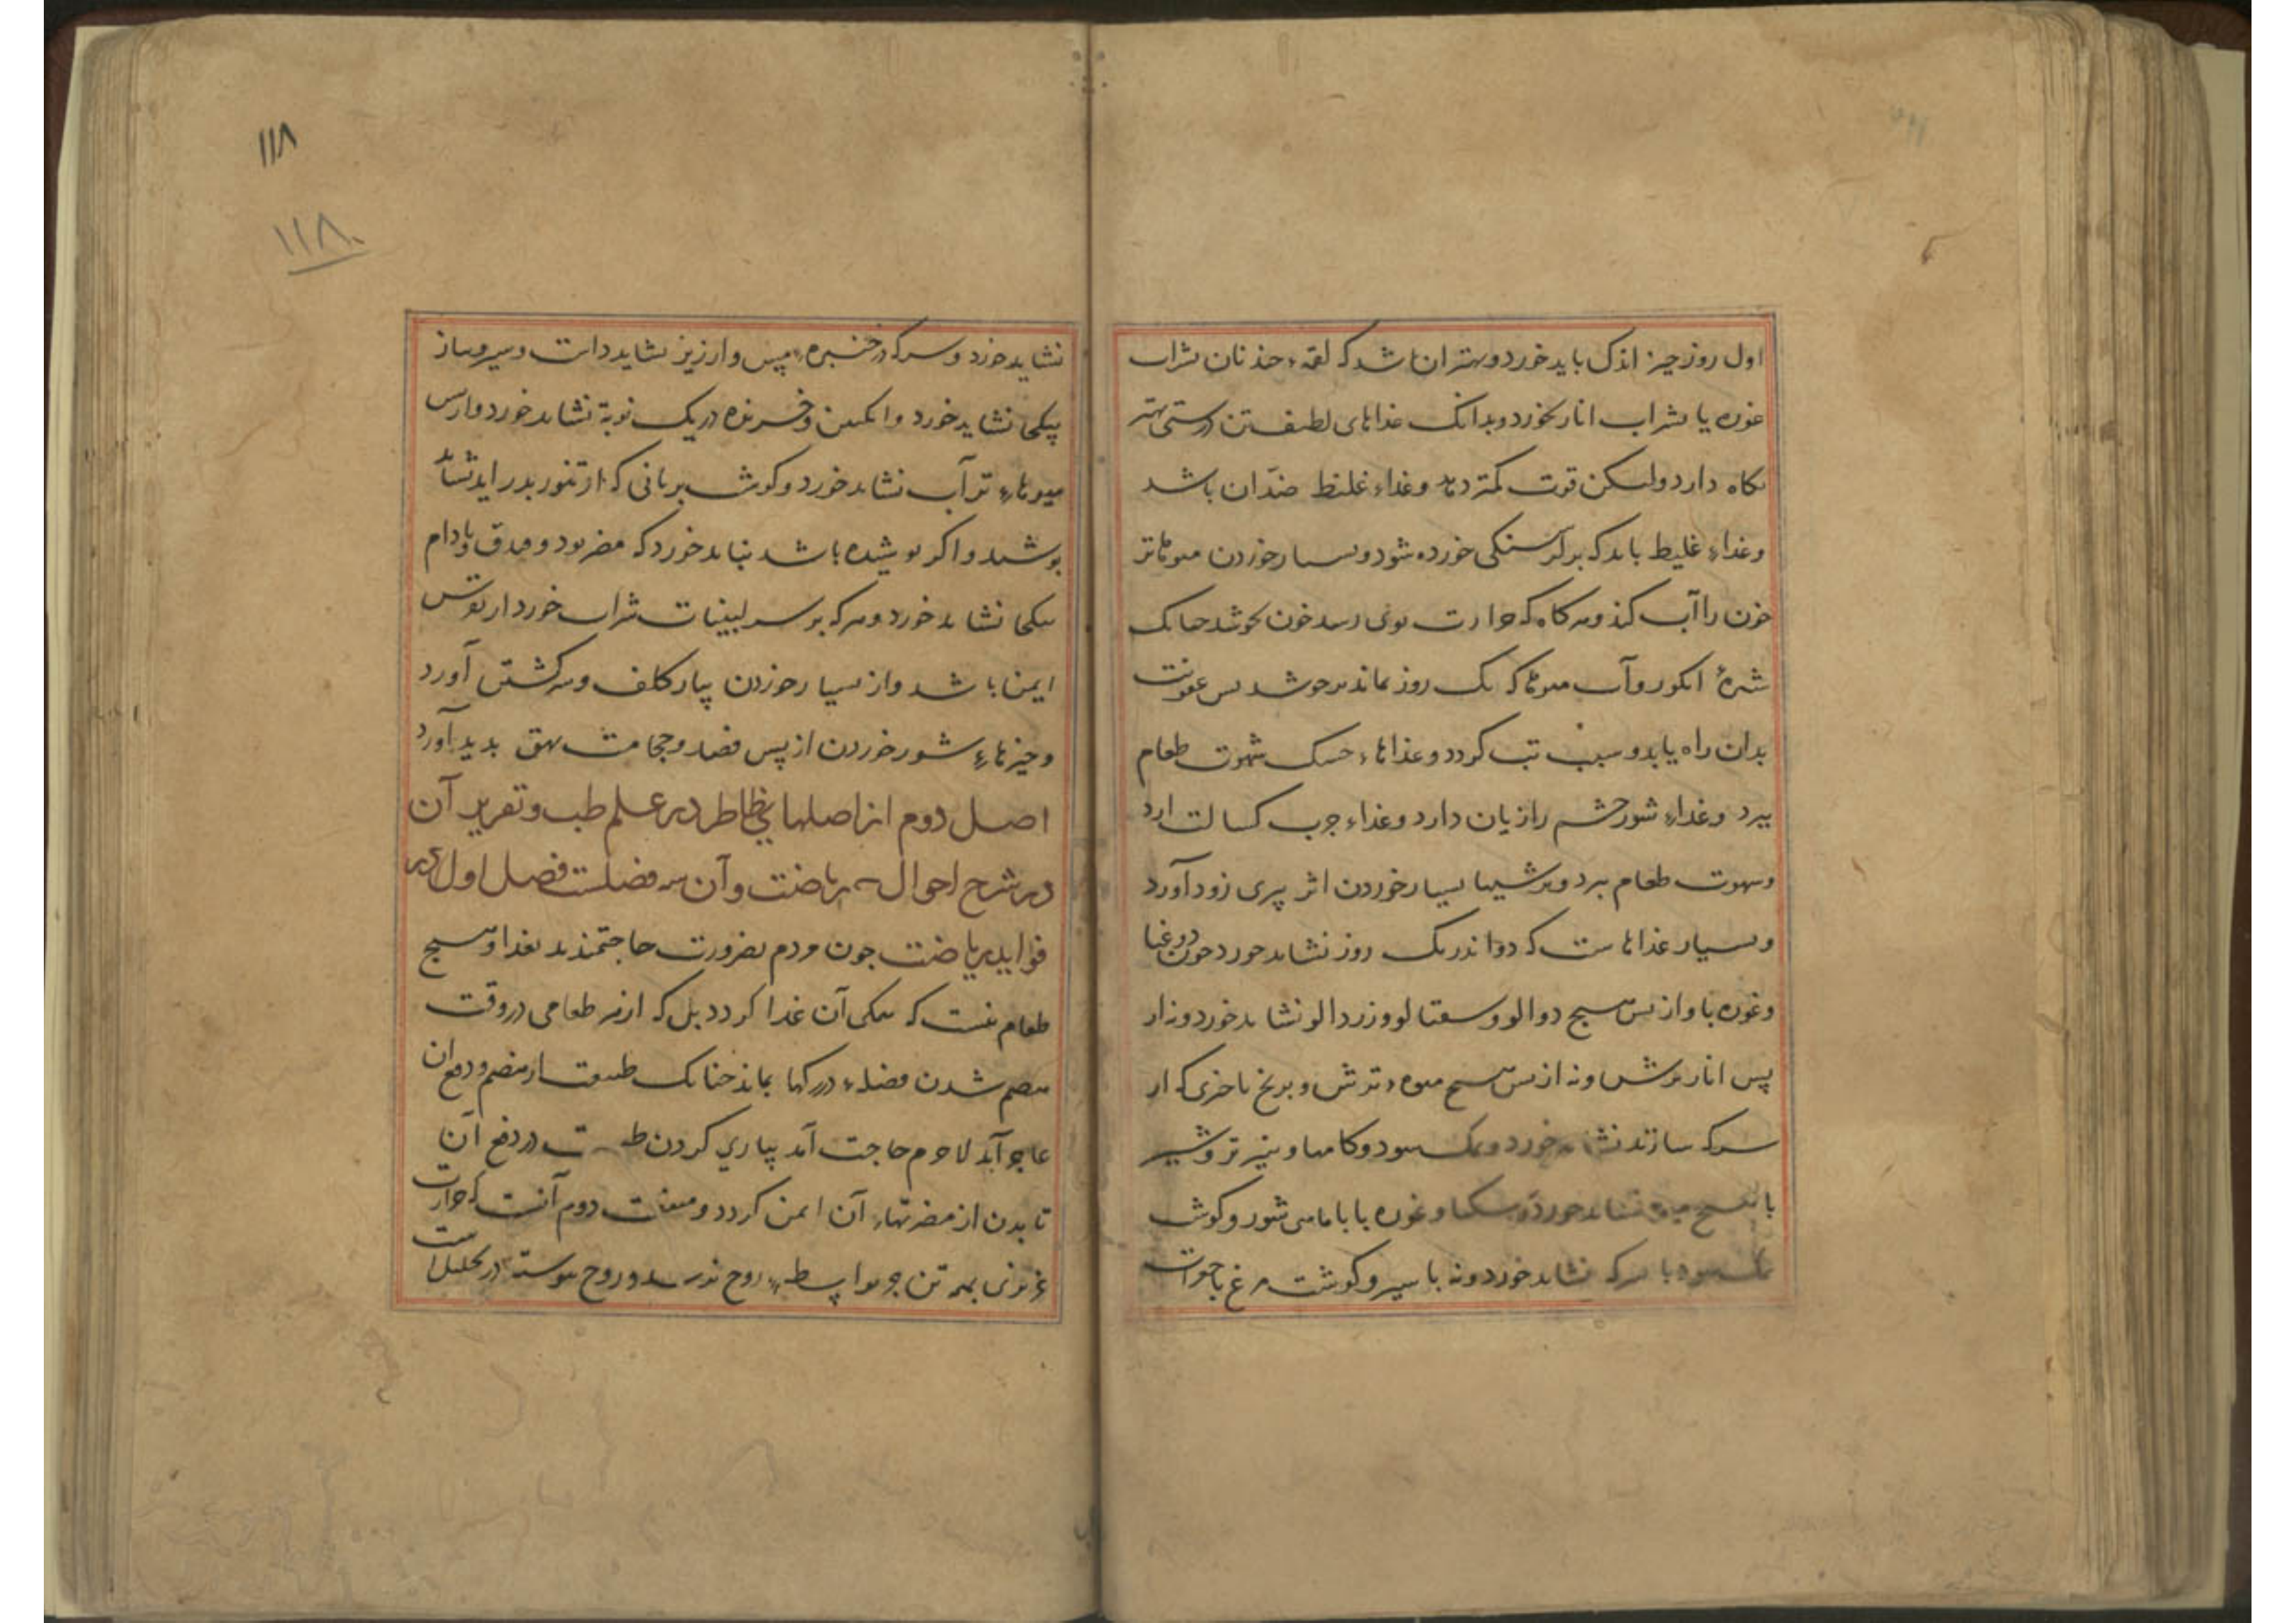 اول روز چیز اندک باید خورد و بهتر آن باشد که لقمهٔ چند نان بشراب
غوره یا بشراب انار بخورد و بدانک غذاهای لطیف تن درستی بهتر
نگاه دارد ولیکن قوت کمتر دهد و غذاء غلیظ ضد آن باشد
و غذاء غلیظ باید که بر گرسنگی خورده شود و بسیار خوردن میوهاء تر
خون را آب کند و هرگاه که حرارت بوی رسد خون بجوشد چنانک
شیرهٔ انگور و آب میوها که یک روز بماند بر جوشد پس عفونت
بدان راه یابد و سبب تب گردد و غذاهاء خشک شهوت طعام
ببرد و غذاء شور چشم را زیان دارد و غذاء چرب کسالت آرد
و شهوت طعام ببرد و ترشیها بسیار خوردن اثر پیری زود آورد
و بسیار غذاهاست که دو اندر یک روز نشاید خورد چون دوغبا
و غوره با و از پس هیچ دو آلو و شفتالو و زردآلو نشاید خورد و نه از
پس انار ترش و نه از پس هیچ میوهٔ ترش و برنج با چیزی که از
سرکه سازند نشاید خورد و نمک سود و کامها و پنیر تر و شیر
با هیچ میوه نشاید خورد و سکبا و غوره با با ماهی شور و گوشت
نمک سود با سرکه نشاید خورد و نه با سیر و گوشت مرغ با جغرات
۱۱۸
۱۱۸
نشاید خورد و سرکه در خنبرهٔ مس و ارزیز نشاید داشت و سیر و پیاز
بیکجا نشاید خورد و انگبین و خربزه در یک نوبة نشاید خورد و از پس
میوهاء تر آب نشاید خورد و گوشت بریانی که از تنور بدر آید نشاید
پوشید و اگر پوشیده باشد نباید خورد که مضر بود و فندق و بادام
بیکجا نشاید خورد و هر که بر سر لبنیات شراب خورد از نقرس
ایمن باشد و از بسیار خوردن پیاز کلف و سر گشتن آورد
و چیزهاء شور خوردن از پس فصد و حجامت بهق پدید آورد
اصل دوم از اصلهای ظاهر در علم طب و تقریر آن
در شرح احوال ریاضت و آن سه فصلست فصل اول در
فواید ریاضت چون مردم بضرورت حاجتمندند بغذا و هیچ
طعام نیست که همگی آن غذا گردد بل که از هر طعامی در وقت
هضم شدن فضلهٔ در رگها بماند چنانک طبیعت از هضم و دفع آن
عاجز آید لاجرم حاجت آمد بیاری کردن طبیعت در دفع آن
تا بدن از مضرتهاء آن ایمن گردد و منفعت دوم آنست که حرارت
غریزی بهمه تن جز بواسطهٔ روح نرسد و روح پیوسته در تحلیل است